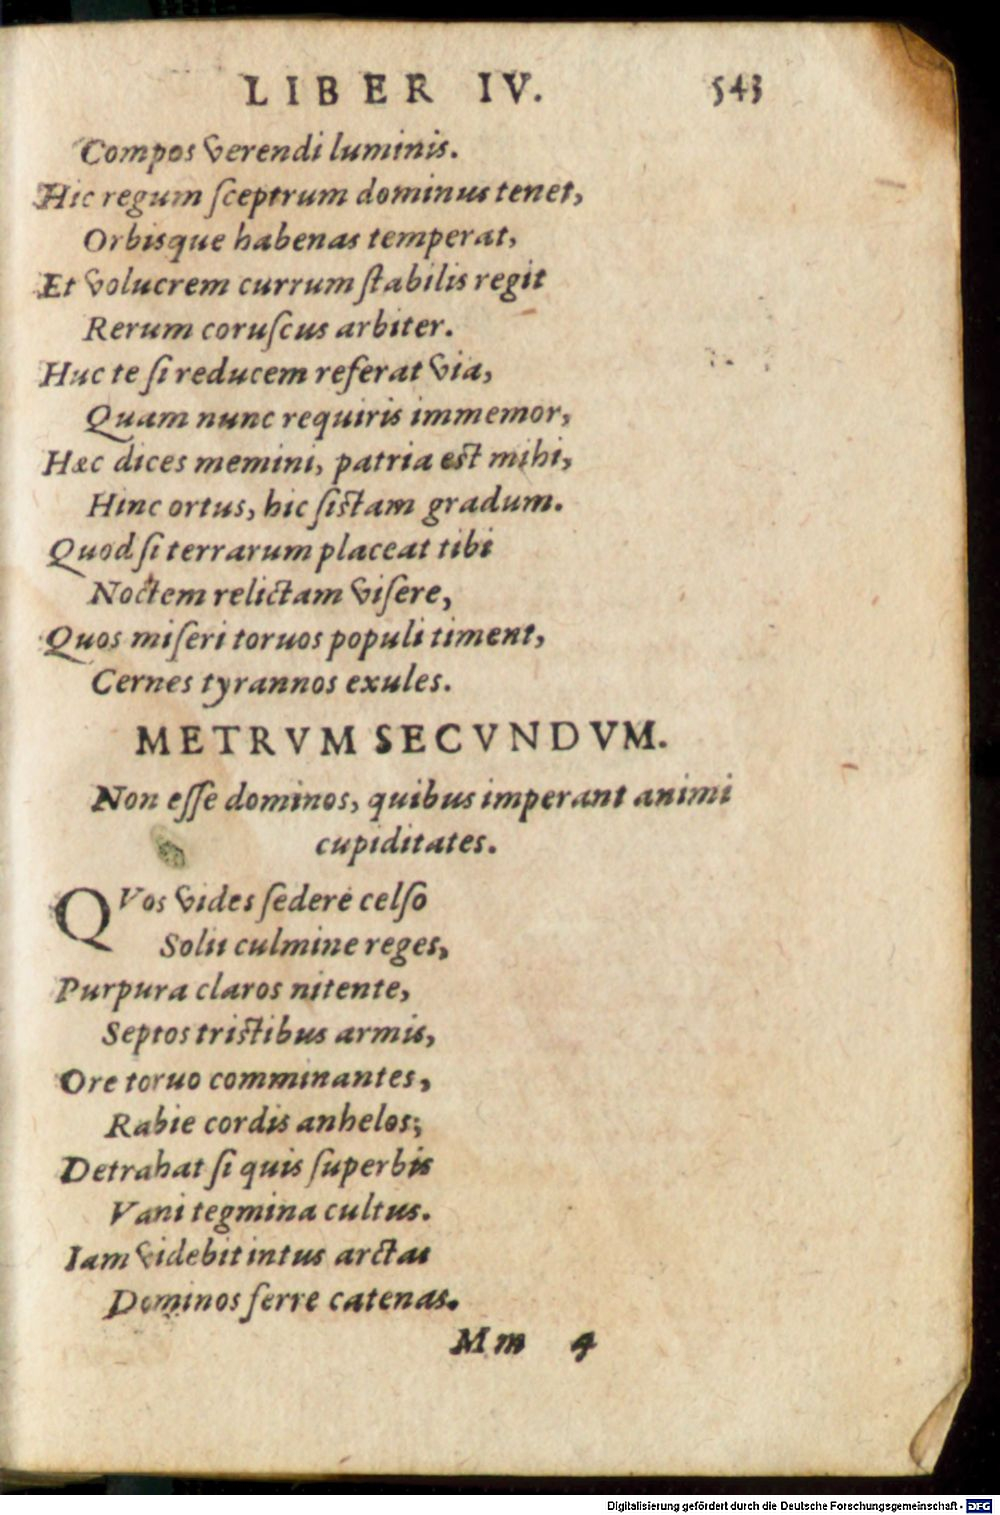 LIBER IV. 543
Compos verendi luminis.
Hic regum ſceptrum dominus tenet,
Orbisque habenas temperat,
Et volucrem currum ſtabilis regit
Rerum coruſcus arbiter.
Huc te ſi reducem referat via,
Quam nunc requiris immemor,
Hæc dices memini, patria eſt mihi,
Hinc ortus, hic ſiſtam gradum.
Quod ſi terrarum placeat tibi
Noctem relictam viſere,
Quos miſeri toruos populi timent,
Cernes tyrannos exules.
METRVM SECVNDVM.
Non eſſe dominos, quibus imperant animi
cupiditates.
QVos vides ſedere celſo
Solii culmine reges,
Purpura claros nitente,
Septos triſtibus armis,
Ore toruo comminantes,
Rabie cordis anhelos;
Detrahat ſi quis ſuperbis
Vani tegmina cultus.
Iam videbit intus arctas
Dominos ferre catenas.
Mm 4
Digitalisierung gefördert durch die Deutsche Forschungsgemeinschaft - DFG